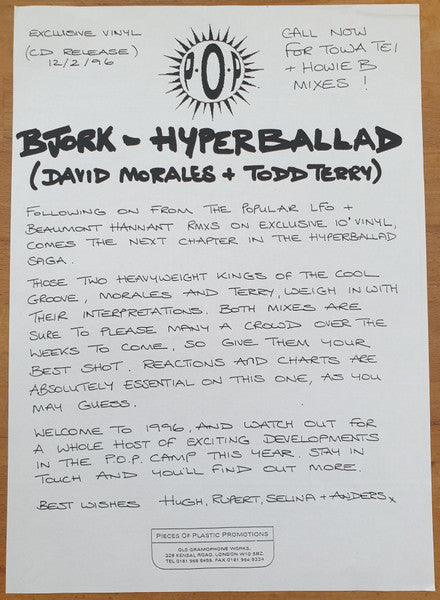 EXCLUSIVE VINYL
(CD RELEASE)
12/2/96
P.O.P
CALL NOW
FOR TOWA TEI
+ HOWIE B
MIXES !
BJORK - HYPERBALLAD
(DAVID MORALES + TODD TERRY)
FOLLOWING ON FROM THE POPULAR LFO +
BEAUMONT HANNANT RMXS ON EXCLUSIVE 10" VINYL,
COMES THE NEXT CHAPTER IN THE HYPERBALLAD
SAGA.
THOSE TWO HEAVYWEIGHT KINGS OF THE COOL
GROOVE, MORALES AND TERRY, WEIGH IN WITH
THEIR INTERPRETATIONS. BOTH MIXES ARE
SURE TO PLEASE MANY A CROWD OVER THE
WEEKS TO COME, SO GIVE THEM YOUR
BEST SHOT. REACTIONS AND CHARTS ARE
ABSOLUTELY ESSENTIAL ON THIS ONE, AS YOU
MAY GUESS.
WELCOME TO 1996, AND WATCH OUT FOR
A WHOLE HOST OF EXCITING DEVELOPMENTS
IN THE P.O.P. CAMP THIS YEAR. STAY IN
TOUCH AND YOU'LL FIND OUT MORE.
BEST WISHES HUGH, RUPERT, SELINA + ANDERS x
PIECES OF PLASTIC PROMOTIONS
OLD GRAMOPHONE WORKS,
326 KENSAL ROAD, LONDON W10 5BZ.
TEL 0181 968 8459. FAX 0181 964 9224